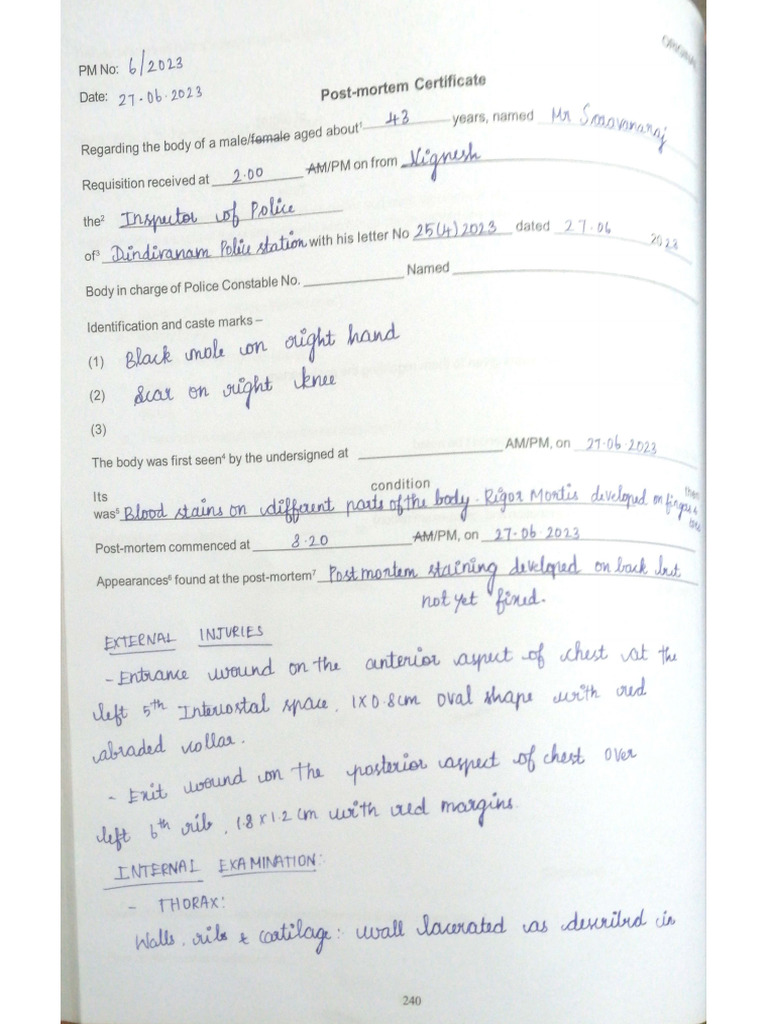 ORIGINAL
PM No: 6/2023
Date: 27-06-2023
Post-mortem Certificate
Regarding the body of a male/female aged about¹ 43 years, named Mr Saravanaraj
Requisition received at 2.00 AM/PM on from Vignesh
the² Inspector of Police
of³ Dindivanam Police station with his letter No 25(4)2023 dated 27.06 2023
Body in charge of Police Constable No. Named
Identification and caste marks –
(1) Black mole on right hand
(2) Scar on right knee
(3)
The body was first seen⁴ by the undersigned at AM/PM, on 27.06.2023
Its condition then
was⁵ Blood stains on different parts of the body. Rigor Mortis developed on fingers & toes
Post-mortem commenced at 8.20 AM/PM, on 27.06.2023
Appearances⁶ found at the post-mortem⁷ Postmortem staining developed on back but
not yet fixed.
EXTERNAL INJURIES
- Entrance wound on the anterior aspect of chest at the
left 5th Intercostal space, 1x0.8cm oval shape with red
abraded collar.
- Exit wound on the posterior aspect of chest over
left 6th rib, 1.8x1.2 cm with red margins.
INTERNAL EXAMINATION:
- THORAX:
Walls, ribs & cartilage: wall lacerated as described in
240